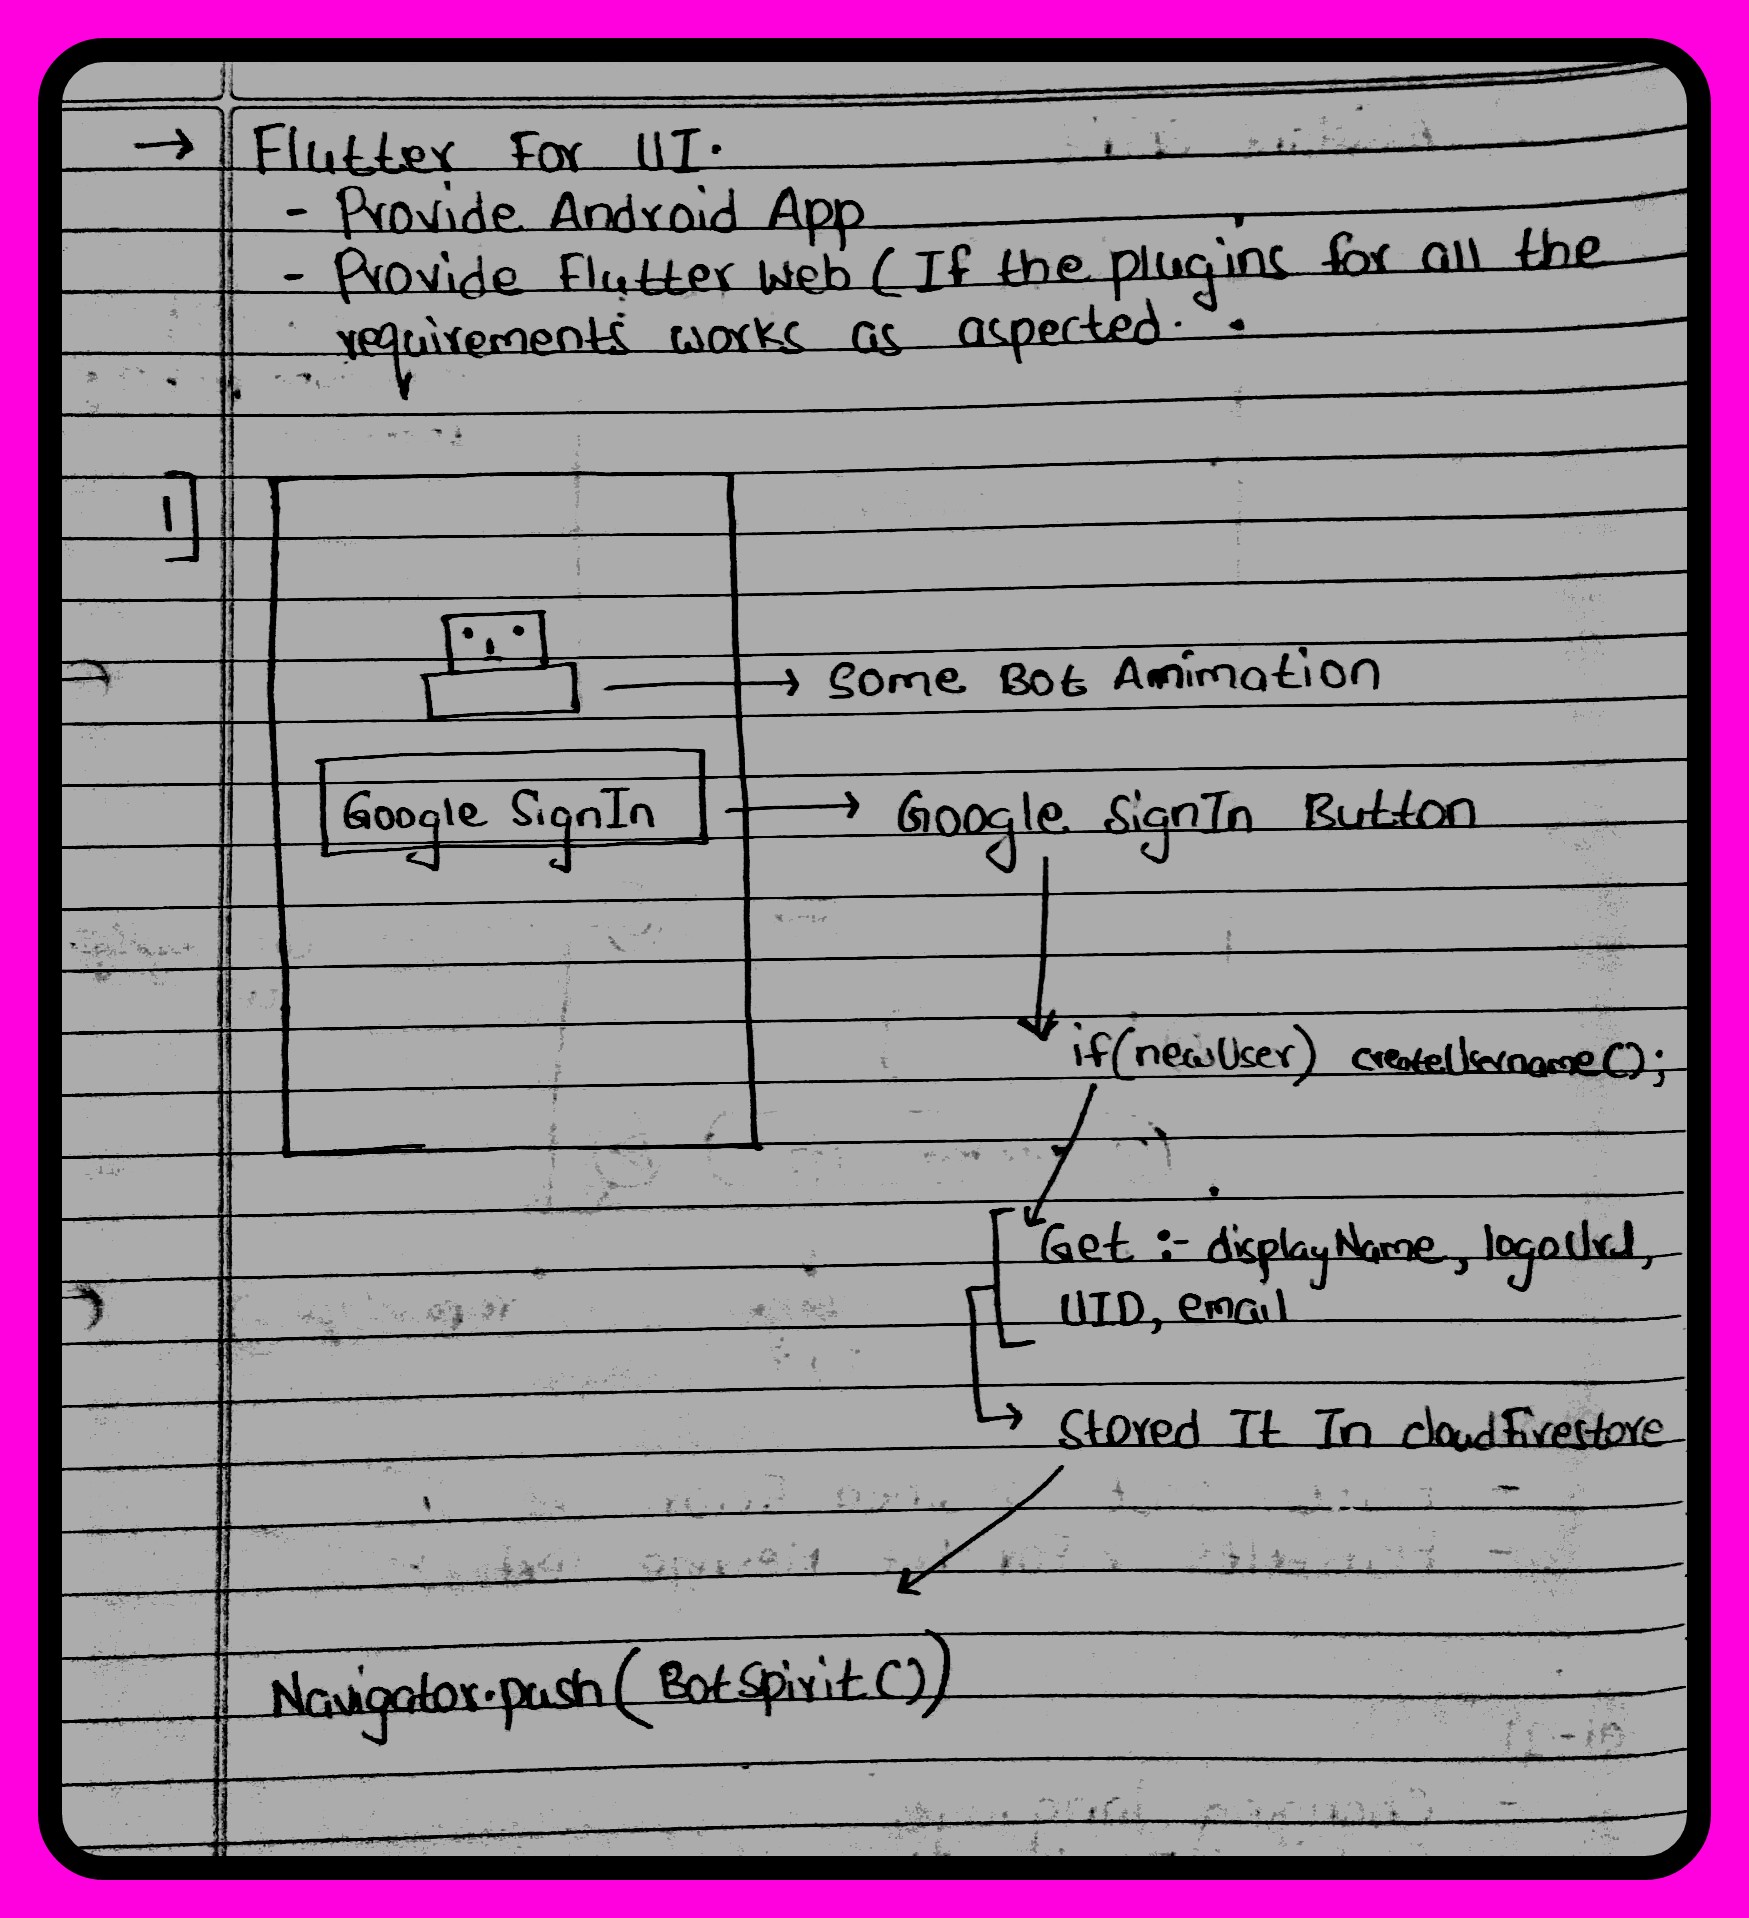 → Flutter For UI.
- Provide Android App
- Provide Flutter Web ( If the plugins for all the
requirements works as aspected.
1]
→ Some Bot Animation
Google SignIn → Google SignIn Button
if(newUser) createUsername();
Get :- displayName, logoUrl,
UID, email
Stored It In cloudFirestore
Navigator.push( BotSpirit())